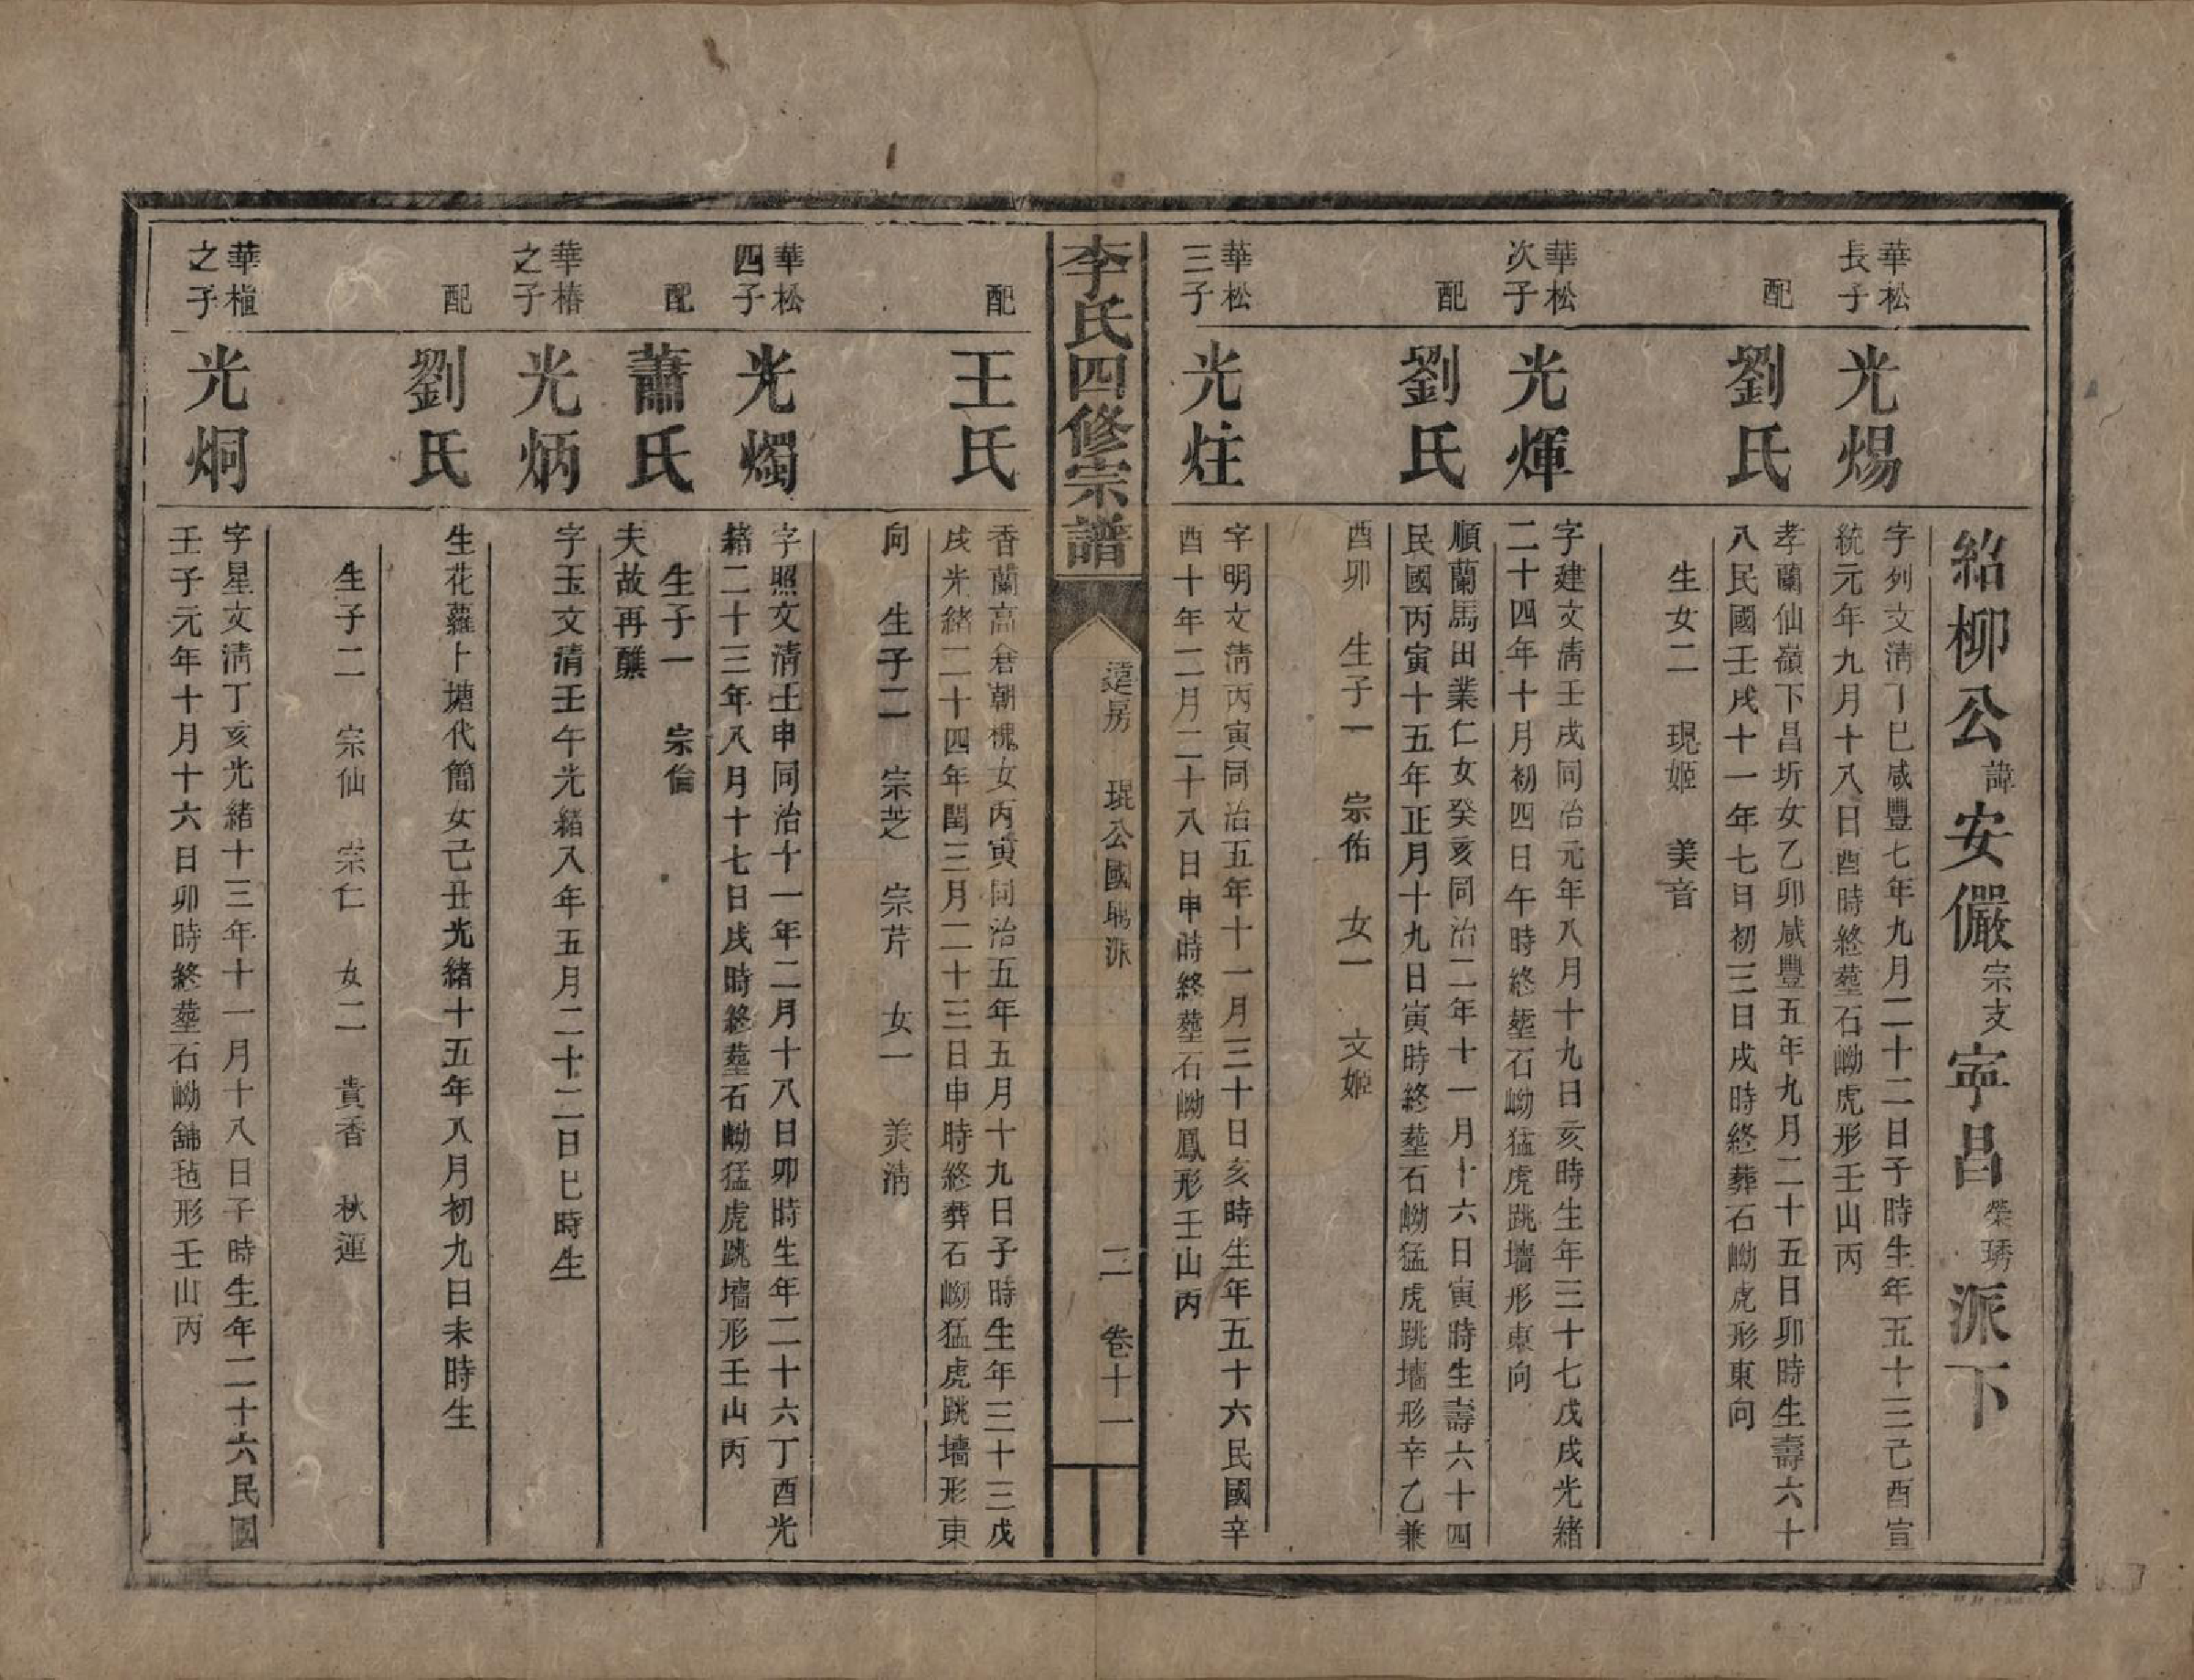 紹柳公諱安儼宗支寧昌榮琇派下
華松長子
光煬
字列文清丁巳咸豐七年九月二十二日子時生年五十三己酉宣
統元年九月十八日酉時終塟石㘭虎形壬山丙
配
劉氏
孝蘭仙嶺下昌圻女乙卯咸豐五年九月二十五日卯時生壽六十
八民國壬戌十一年七日初三日戌時終葬石㘭虎形東向
生女二 現姬 美音
華松次子
光煇
字建文清壬戌同治元年八月十九日亥時生年三十七戊戌光緒
二十四年十月初四日午時終塟石㘭猛虎跳墻形東向
配
劉氏
順蘭馬田業仁女癸亥同治二年十一月十六日寅時生壽六十四
民國丙寅十五年正月十九日寅時終塟石㘭猛虎跳墻形辛乙兼
酉卯 生子一 宗佑 女一 文姬
華松三子
光炷
字明文清丙寅同治五年十一月三十日亥時生年五十六民國辛
酉十年二月二十八日申時終塟石㘭鳳形壬山丙
李氏四修宗譜
遠房 琨公國 派 二 卷十一
配
王氏
香蘭高 朝槐女丙寅同治五年五月十九日子時生年三十三戊
戌光緒二十四年閏三月二十三日申時終葬石㘭猛虎跳墻形東
向 生子二 宗芝 宗芹 女一 美清
華松四子
光燭
字照文清壬申同治十一年二月十八日卯時生年二十六丁酉光
緒二十三年八月十七日戌時終塟石㘭猛虎跳墻形壬山丙
配
蕭氏
生子一 宗倫
夫故再醮
華椿之子
光炳
字玉文清壬午光緒八年五月二十二日巳時生
配
劉氏
生花蘿卜塘代簡女己丑光緒十五年八月初九日未時生
生子二 宗仙 宗仁 女二 貴香 秋蓮
華植之子
光炯
字星文清丁亥光緒十三年十一月十八日子時生年二十六民國
壬子元年十月十六日卯時終塟石㘭舖毡形壬山丙